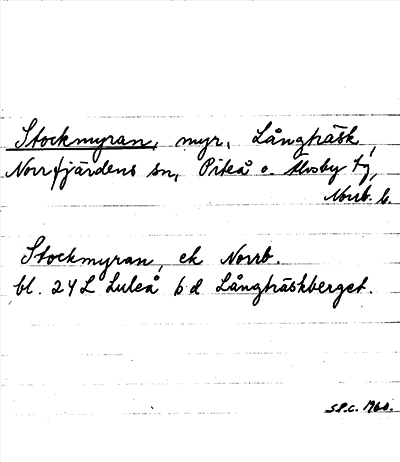 Stockmyran, myr, Långträsk,
Norrfjärdens sn, Piteå o. Älvsby tg,
Norrb. l.
Stockmyran, ek Norrb.
bl. 24 L Luleå 6 d Långträskberget.
S.P.C. 1960.